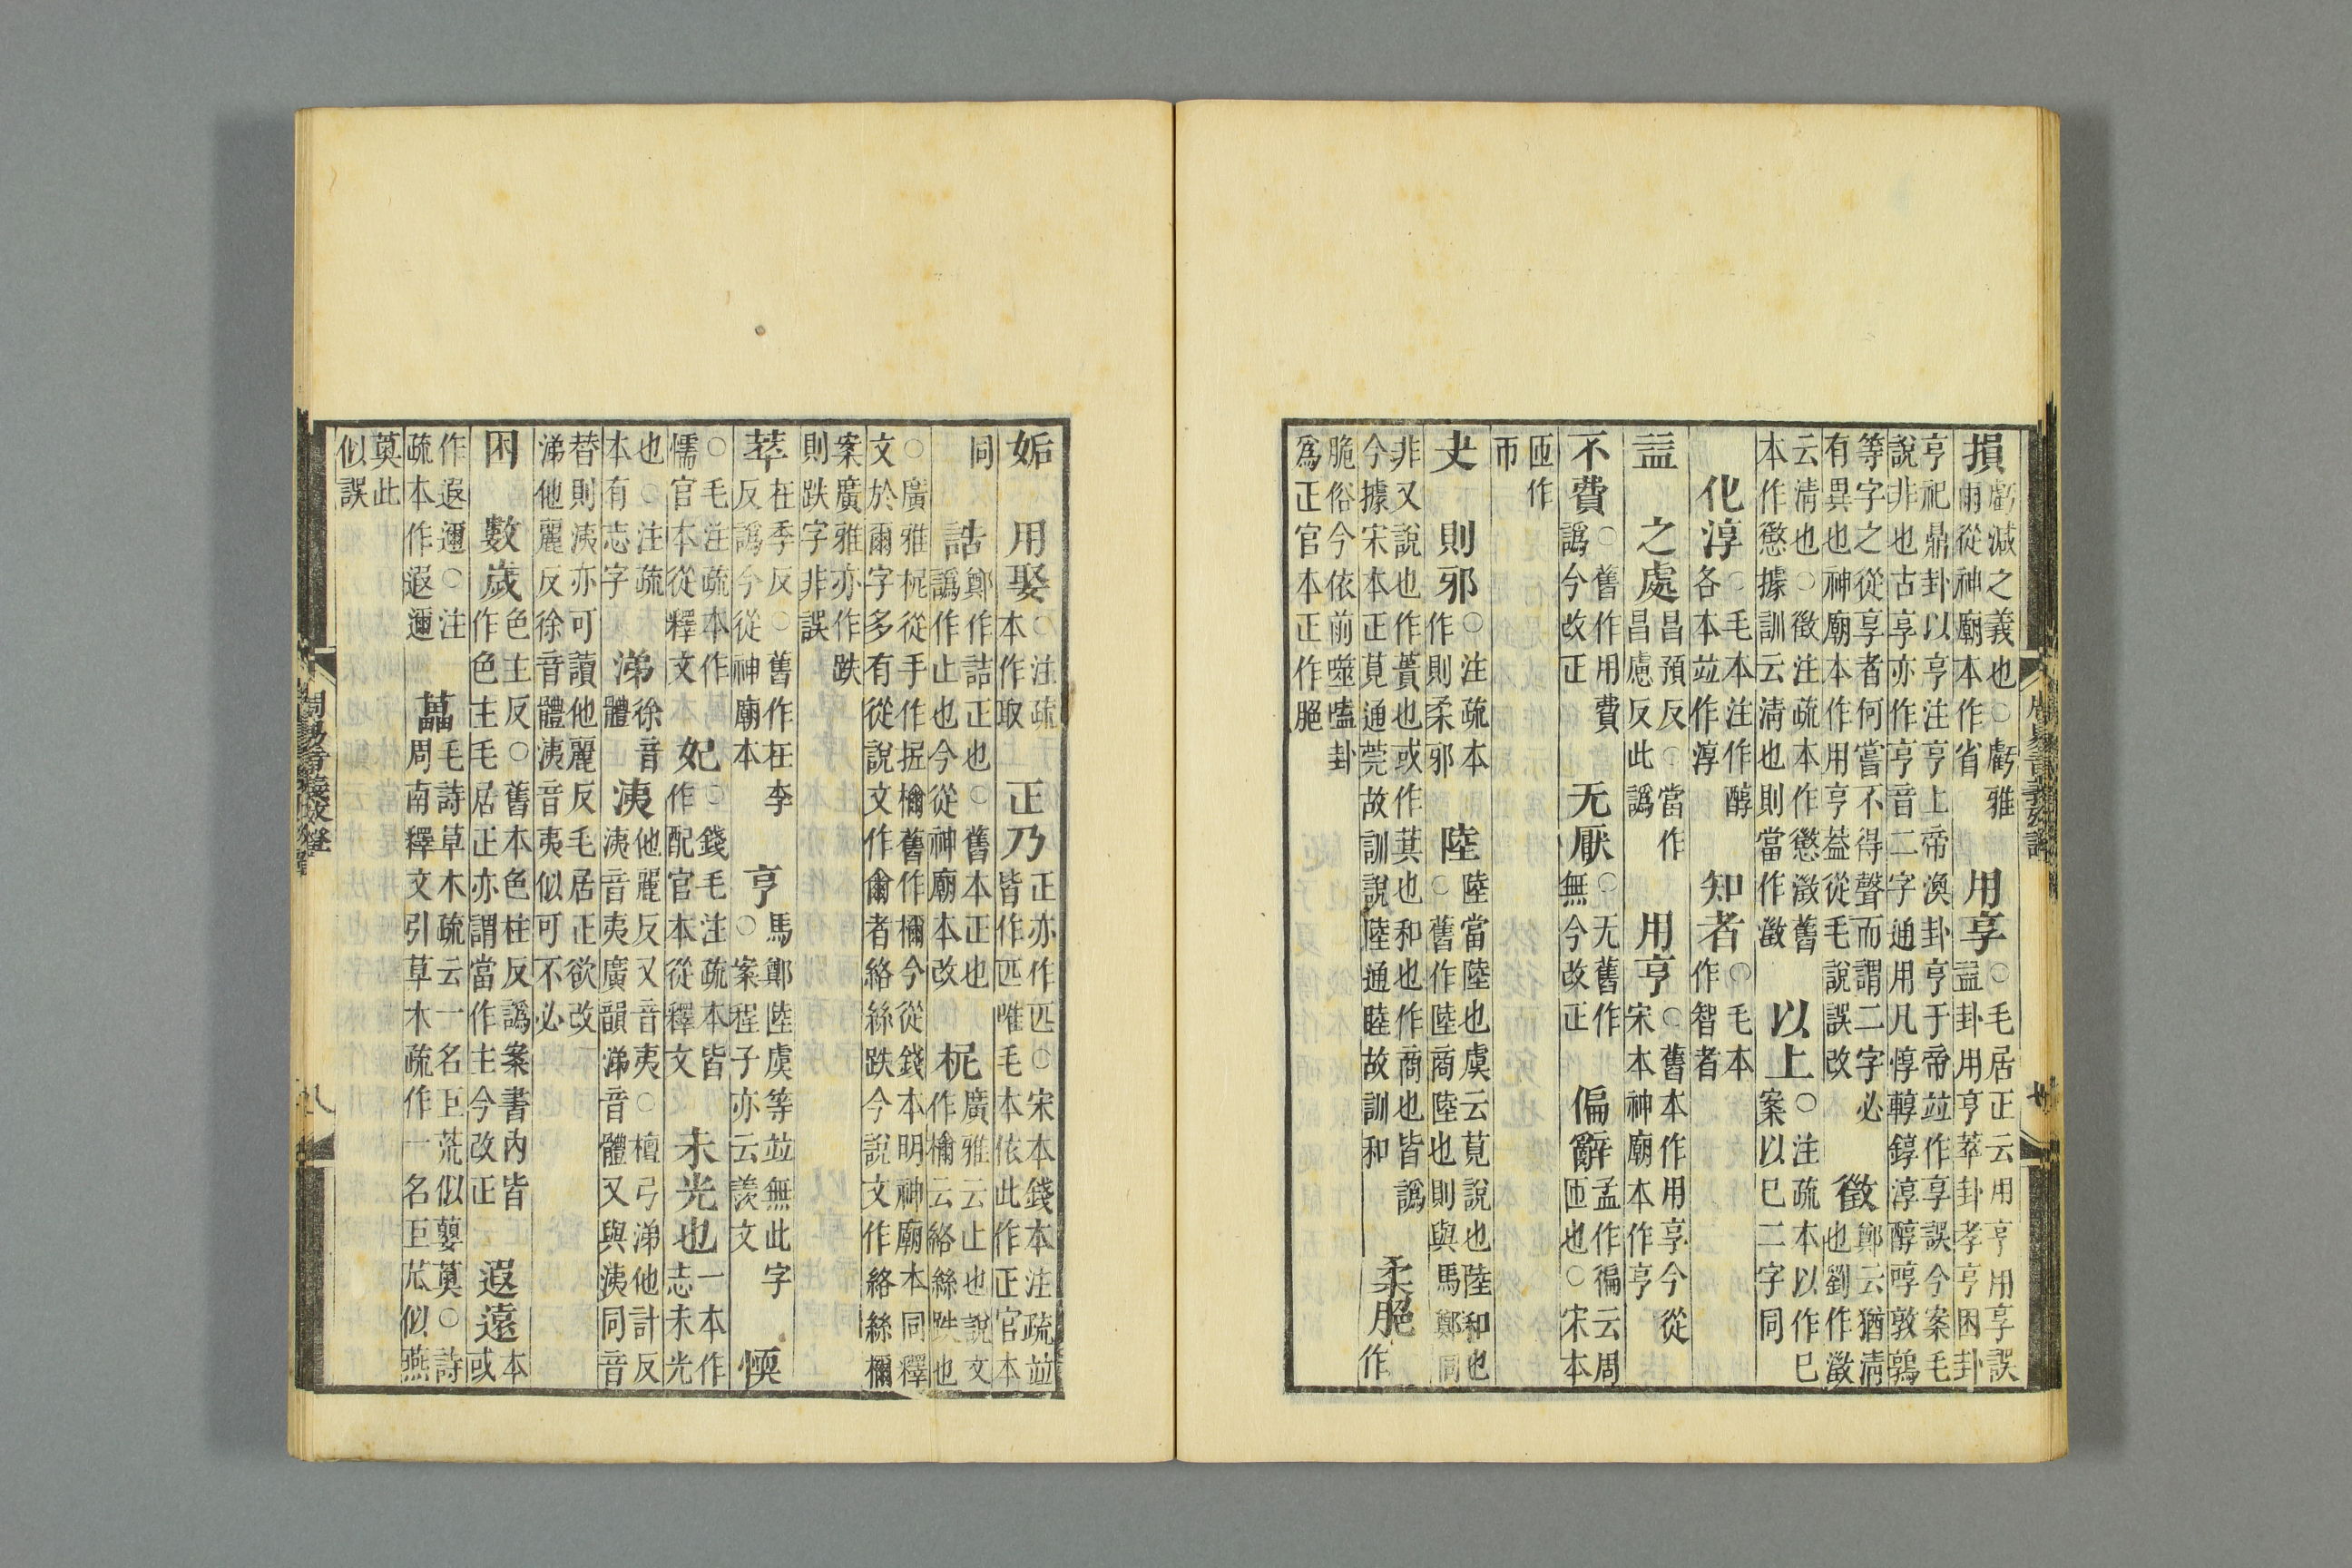 損虧減之義也○虧雅
爾從神廟本作省
用享○毛居正云用亨用享誤
益卦用亨萃卦孝亨困卦
亨祀鼎卦以亨注亨上帝渙卦亨于帝並作享誤今案毛
說非也古享亦作亨音二字通用凡惇輴錞淳醇啍敦鶉
等字之從享者何嘗不得聲而謂二字必
有異也神廟本作用亨葢從毛說誤改
徵鄭云猶清
也劉作澂
云清也○徵注疏本作懲澂舊
本作懲據訓云清也則當作澂
以上○注疏本以作巳
案以巳二字同
化淳○毛本注作醇
各本並作淳
知者○毛本
作智者
益
之處昌預反○當作
昌慮反此譌
用亨○舊本作用享今從
宋本神廟本作亨
不費○舊作用費
譌今改正
无厭○无舊作
無今改正
偏辭孟作徧云周
匝也○宋本
匝作
帀
夬
則邪○注疏本
作則柔邪
陸陸當陸也虞云莧說也陸和也
○舊作陸商陸也則與馬鄭同
非又說也作蕢也或作萁也和也作商也皆譌
今據宋本正莧通莞故訓說陸通睦故訓和
柔脃作
脆俗今依前噬嗑卦
爲正官本正作脃
姤
用娶○注疏
本作取
正乃正亦作匹○宋本錢本注疏並
皆作匹唯毛本依此作正官本
同
誥鄭作詰正也○舊本正也
譌作止也今從神廟本改
柅廣雅云止也說文
作檷云絡絲趺也
○廣雅柅從手作抳檷舊作檷今從錢本明神廟本同釋
文於爾字多有從說文作尒者絡絲趺今說文作絡絲檷
案廣雅亦作趺
則跌字非誤
萃在季反○舊作在李
反譌今從神廟本
亨馬鄭陸虞等並無此字
○案程子亦云羨文
愞
○毛注疏本作
懦官本從釋文
妃○錢毛注疏本皆
作配官本從釋文
未光也一本作
志未光
也○注疏
本有志字
涕徐音
體
洟他麗反又音夷○檀弓涕他計反
洟音夷廣韻涕音體又與洟同音
替則洟亦可讀他麗反毛居正欲改
涕他麗反徐音體洟音夷似可不必
困
數歲色主反○舊本色柱反譌案書內皆
作色主毛居正亦謂當作主今改正
遐遠本
或
作遐邇○注
疏本作遐邇
藟毛詩草木疏云一名巨荒似蘡薁○詩
周南釋文引草木疏作一名巨苽似燕
薁此
似誤